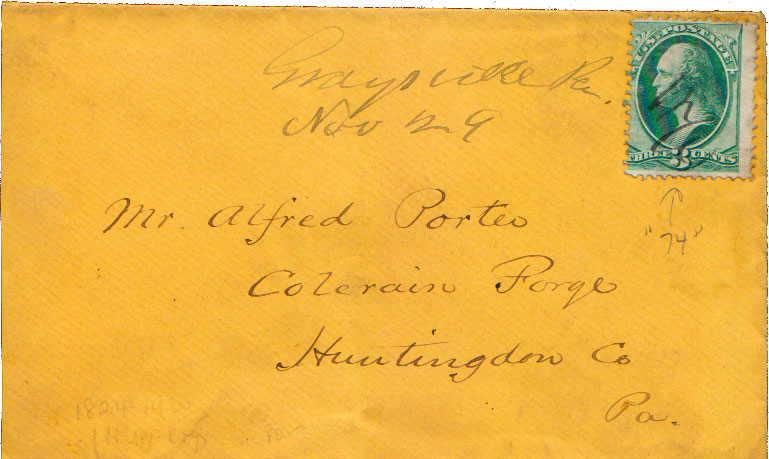 Graysville Pa.
Nov 29
U.S. POSTAGE
THREE 3 CENTS
Mr. Alfred Porter
"74"
Colerain Forge
Huntingdon Co
Pa.